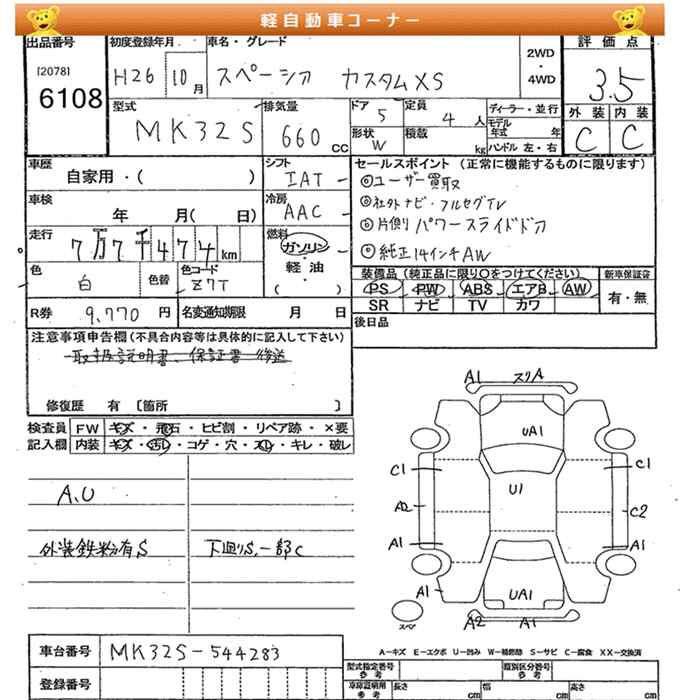 軽自動車コーナー
出品番号 初度登録年月 車名・グレード 2WD・4WD 評価点
[2078] 6108 H26 10月 スペーシア カスタムXS 3.5
型式 MK32S 排気量 660 CC
ドア 5 定員 4人 ディーラー・並行
形状 W 積載 kg モデル年式 年
ハンドル 左・右
外装 内装
C C
車歴 自家用・( )
シフト IAT
セールスポイント (正常に機能するものに限ります)
◎ユーザー買取
◎社外ナビ・フルセグTV
◎片側パワースライドドア
◎純正14インチAW
車検 年 月( 日)
冷房 AAC
走行 7万7千474km
燃料 ガソリン・軽油・( )
色 白 色替 色コード Z7T
装備品 (純正品に限り○をつけてください) 新車保証書
PS PW ABS エアB AW 有・無
SR ナビ TV カワ
R券 9,770円 名変通知期限 月 日
後日品
注意事項申告欄(不具合内容等は具体的に記入して下さい)
取扱説明書、保証書後送
修復歴 有 [箇所 ]
検査員記入欄 FW キズ・飛石・ヒビ割・リペア跡・×要
内装 キズ・汚レ・コゲ・穴・スレ・キレ・破レ
A.U
外装鉄粉有S 下廻りS.一部C
A1 スリA
UA1
C1 C1
U1
A2 C2
A1 A1
A1 UA1
スペア A2 A1
A-キズ E-エクボ U-凹み W-補修跡 S-サビ C-腐食 XX-交換済
車台番号 MK32S-544283
登録番号
型式指定番号 参考 類別区分番号 参考
車庫証明用 参考 長さ cm 幅 cm 高さ cm